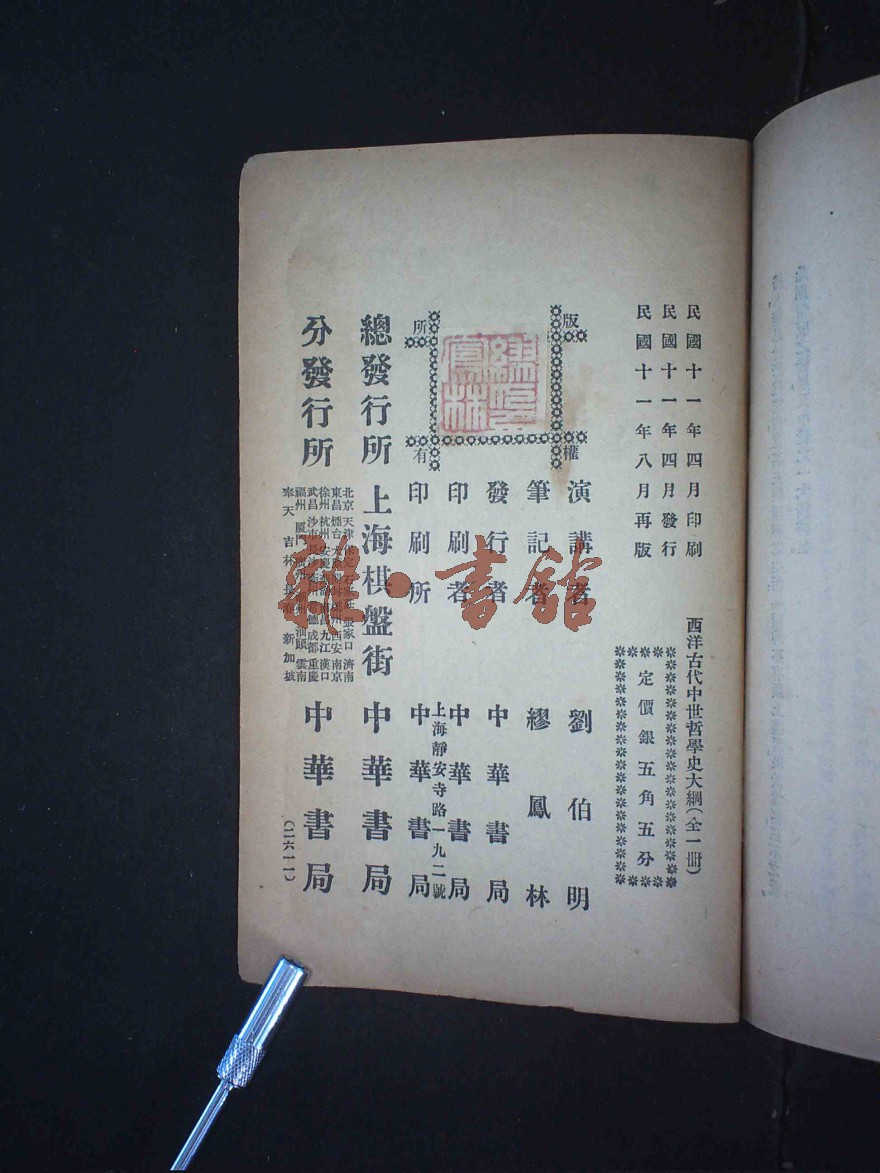 民國十一年四月印刷
民國十一年四月發行
民國十一年八月再版
西洋古代中世哲學史大綱(全一册)
定價銀五角五分
版權所有
演講者 劉伯明
筆記者 繆鳳林
發行者 中華書局
印刷者 中華書局
上海靜安寺路一九二號
印刷所 中華書局
總發行所 上海棋盤街 中華書局
分發行所
北京 天津 保定 石家莊 張家口 濟南
東昌 煙台 太原 開封 鄭州 西安 南京
徐州 杭州 安慶 蕪湖 南昌 九江 漢口
武昌 沙市 長沙 衡州 常德 成都 重慶
福州 厦門 廣州 潮州 汕頭 雲南
奉天 吉林 長春 新加坡
中華書局
(二六一一)
雜·書館